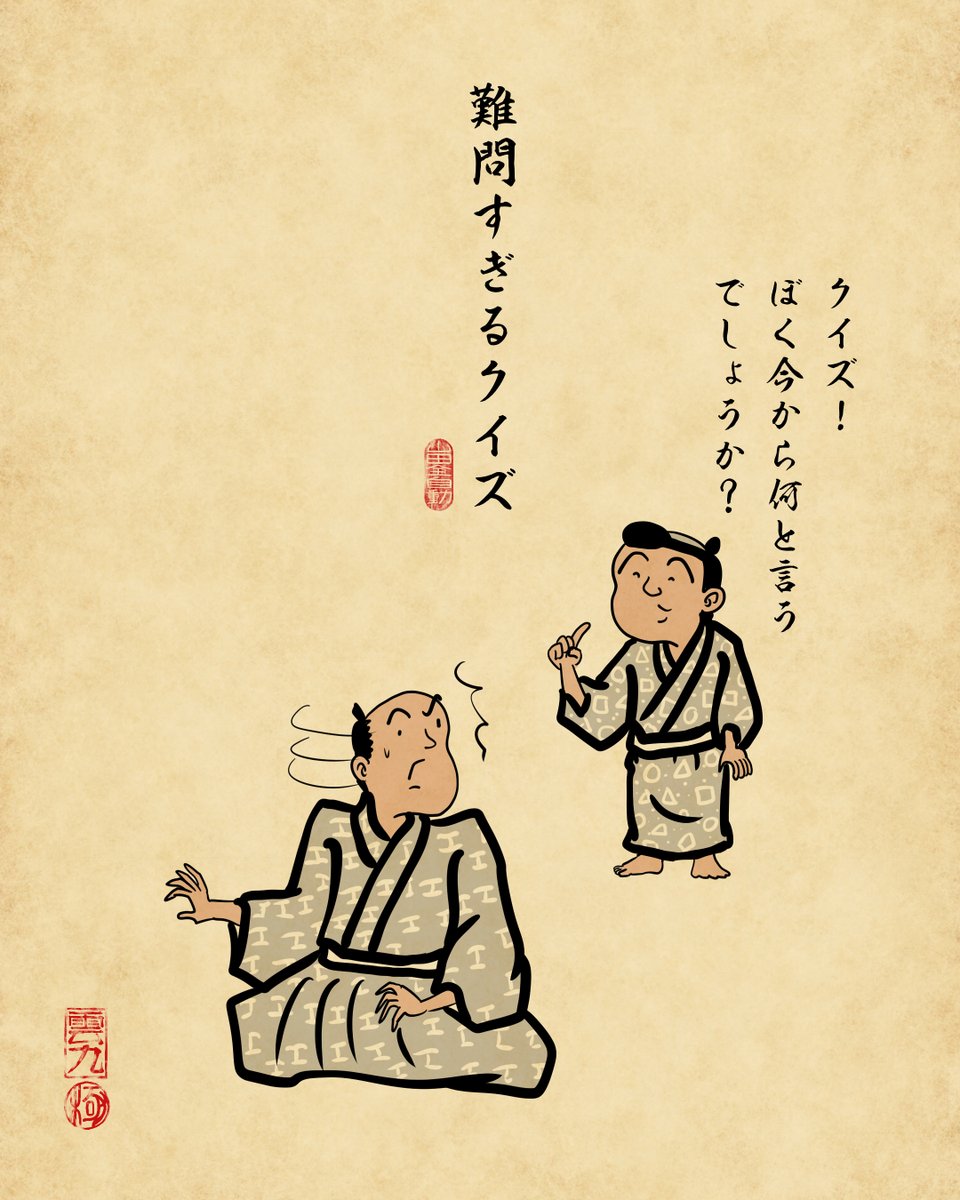 難問すぎるクイズ
クイズ！
ぼく今から何と言う
でしょうか？